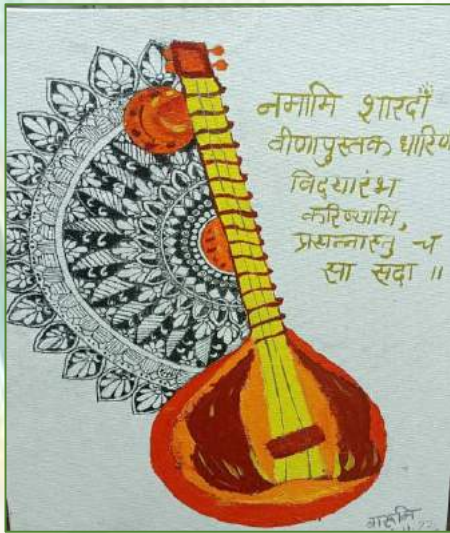 नमामि शारदाँ
वीणापुस्तक धारिण
विद्यारंभ
करिष्यामि,
प्रसन्नास्तु च
सा सदा ॥